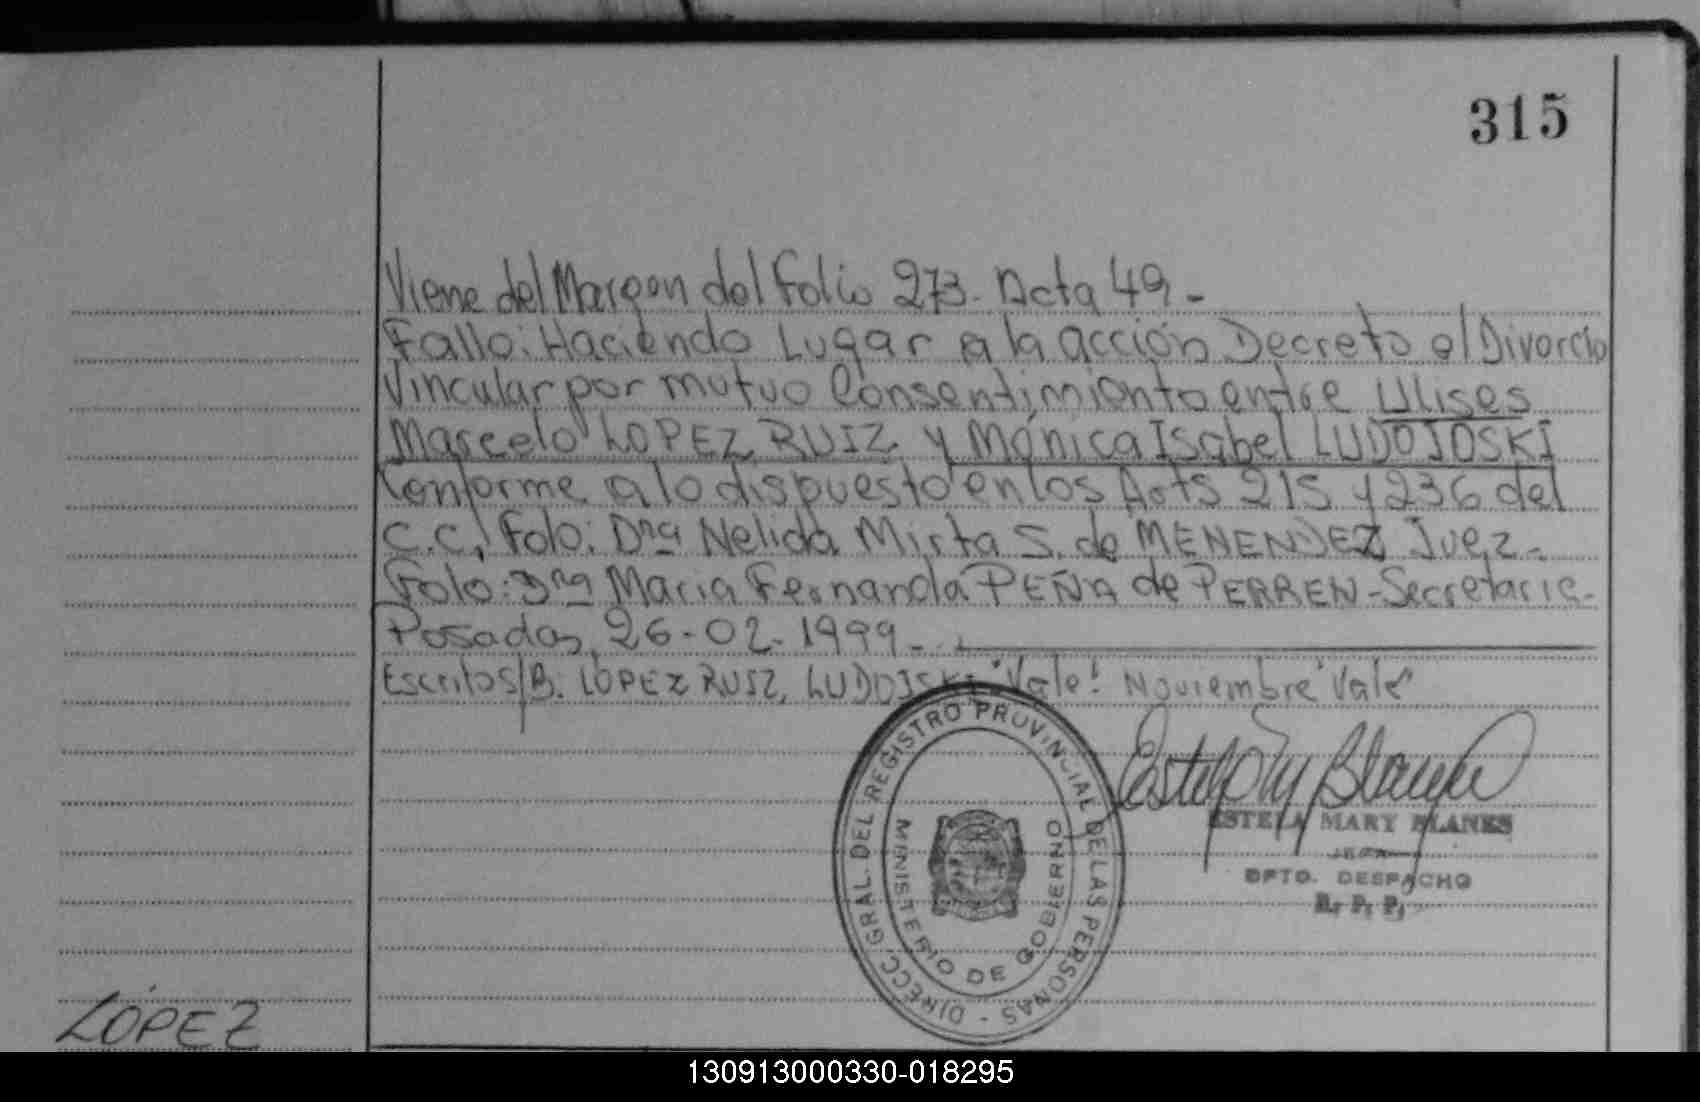 315
Viene del Margen del folio 273. Acta 49.-
Fallo: Haciendo Lugar a la acción Decreto el Divorcio
Vincular por mutuo Consentimiento entre Ulises
Marcelo LOPEZ RUIZ y Mónica Isabel LUDOJOSKI
Conforme a lo dispuesto en los Arts 215 y 236 del
C.C, Fdo: Dra Nelida Mirta S. de MENENDEZ Juez.-
Fdo: Dra Maria Fernanda PEÑA de PERREN-Secretaria-
Posadas, 26-02-1999.-
Escritos/B: LOPEZ RUIZ, LUDOJSKI "Vale! Noviembre "Vale"
DIRECC. GRAL. DEL REGISTRO PROVINCIAL DE LAS PERSONAS -
MINISTERIO DE GOBIERNO
ESTELA MARY BLANKS
JEFA
DPTO. DESPACHO
R. P. P.
LÓPEZ
130913000330-018295